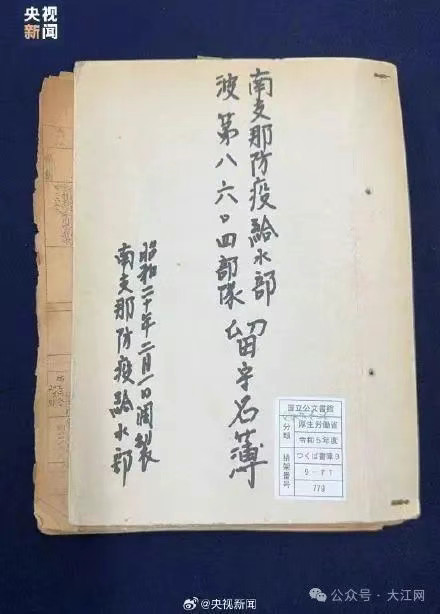 央视
新闻
南支那防疫給水部
波第八六〇四部隊 留守名簿
昭和二十年二月一日調製
南支那防疫給水部
国立公文書館
分類
厚生労働省
令和5年度
排架番号
つくば書庫9
779
@央视新闻
公众号·大江网